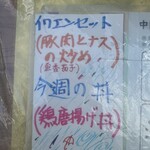 イワエンセット
(豚肉とナス
の炒め)
(魚香茄子)
今週の丼
(鶏唐揚げ丼)
中